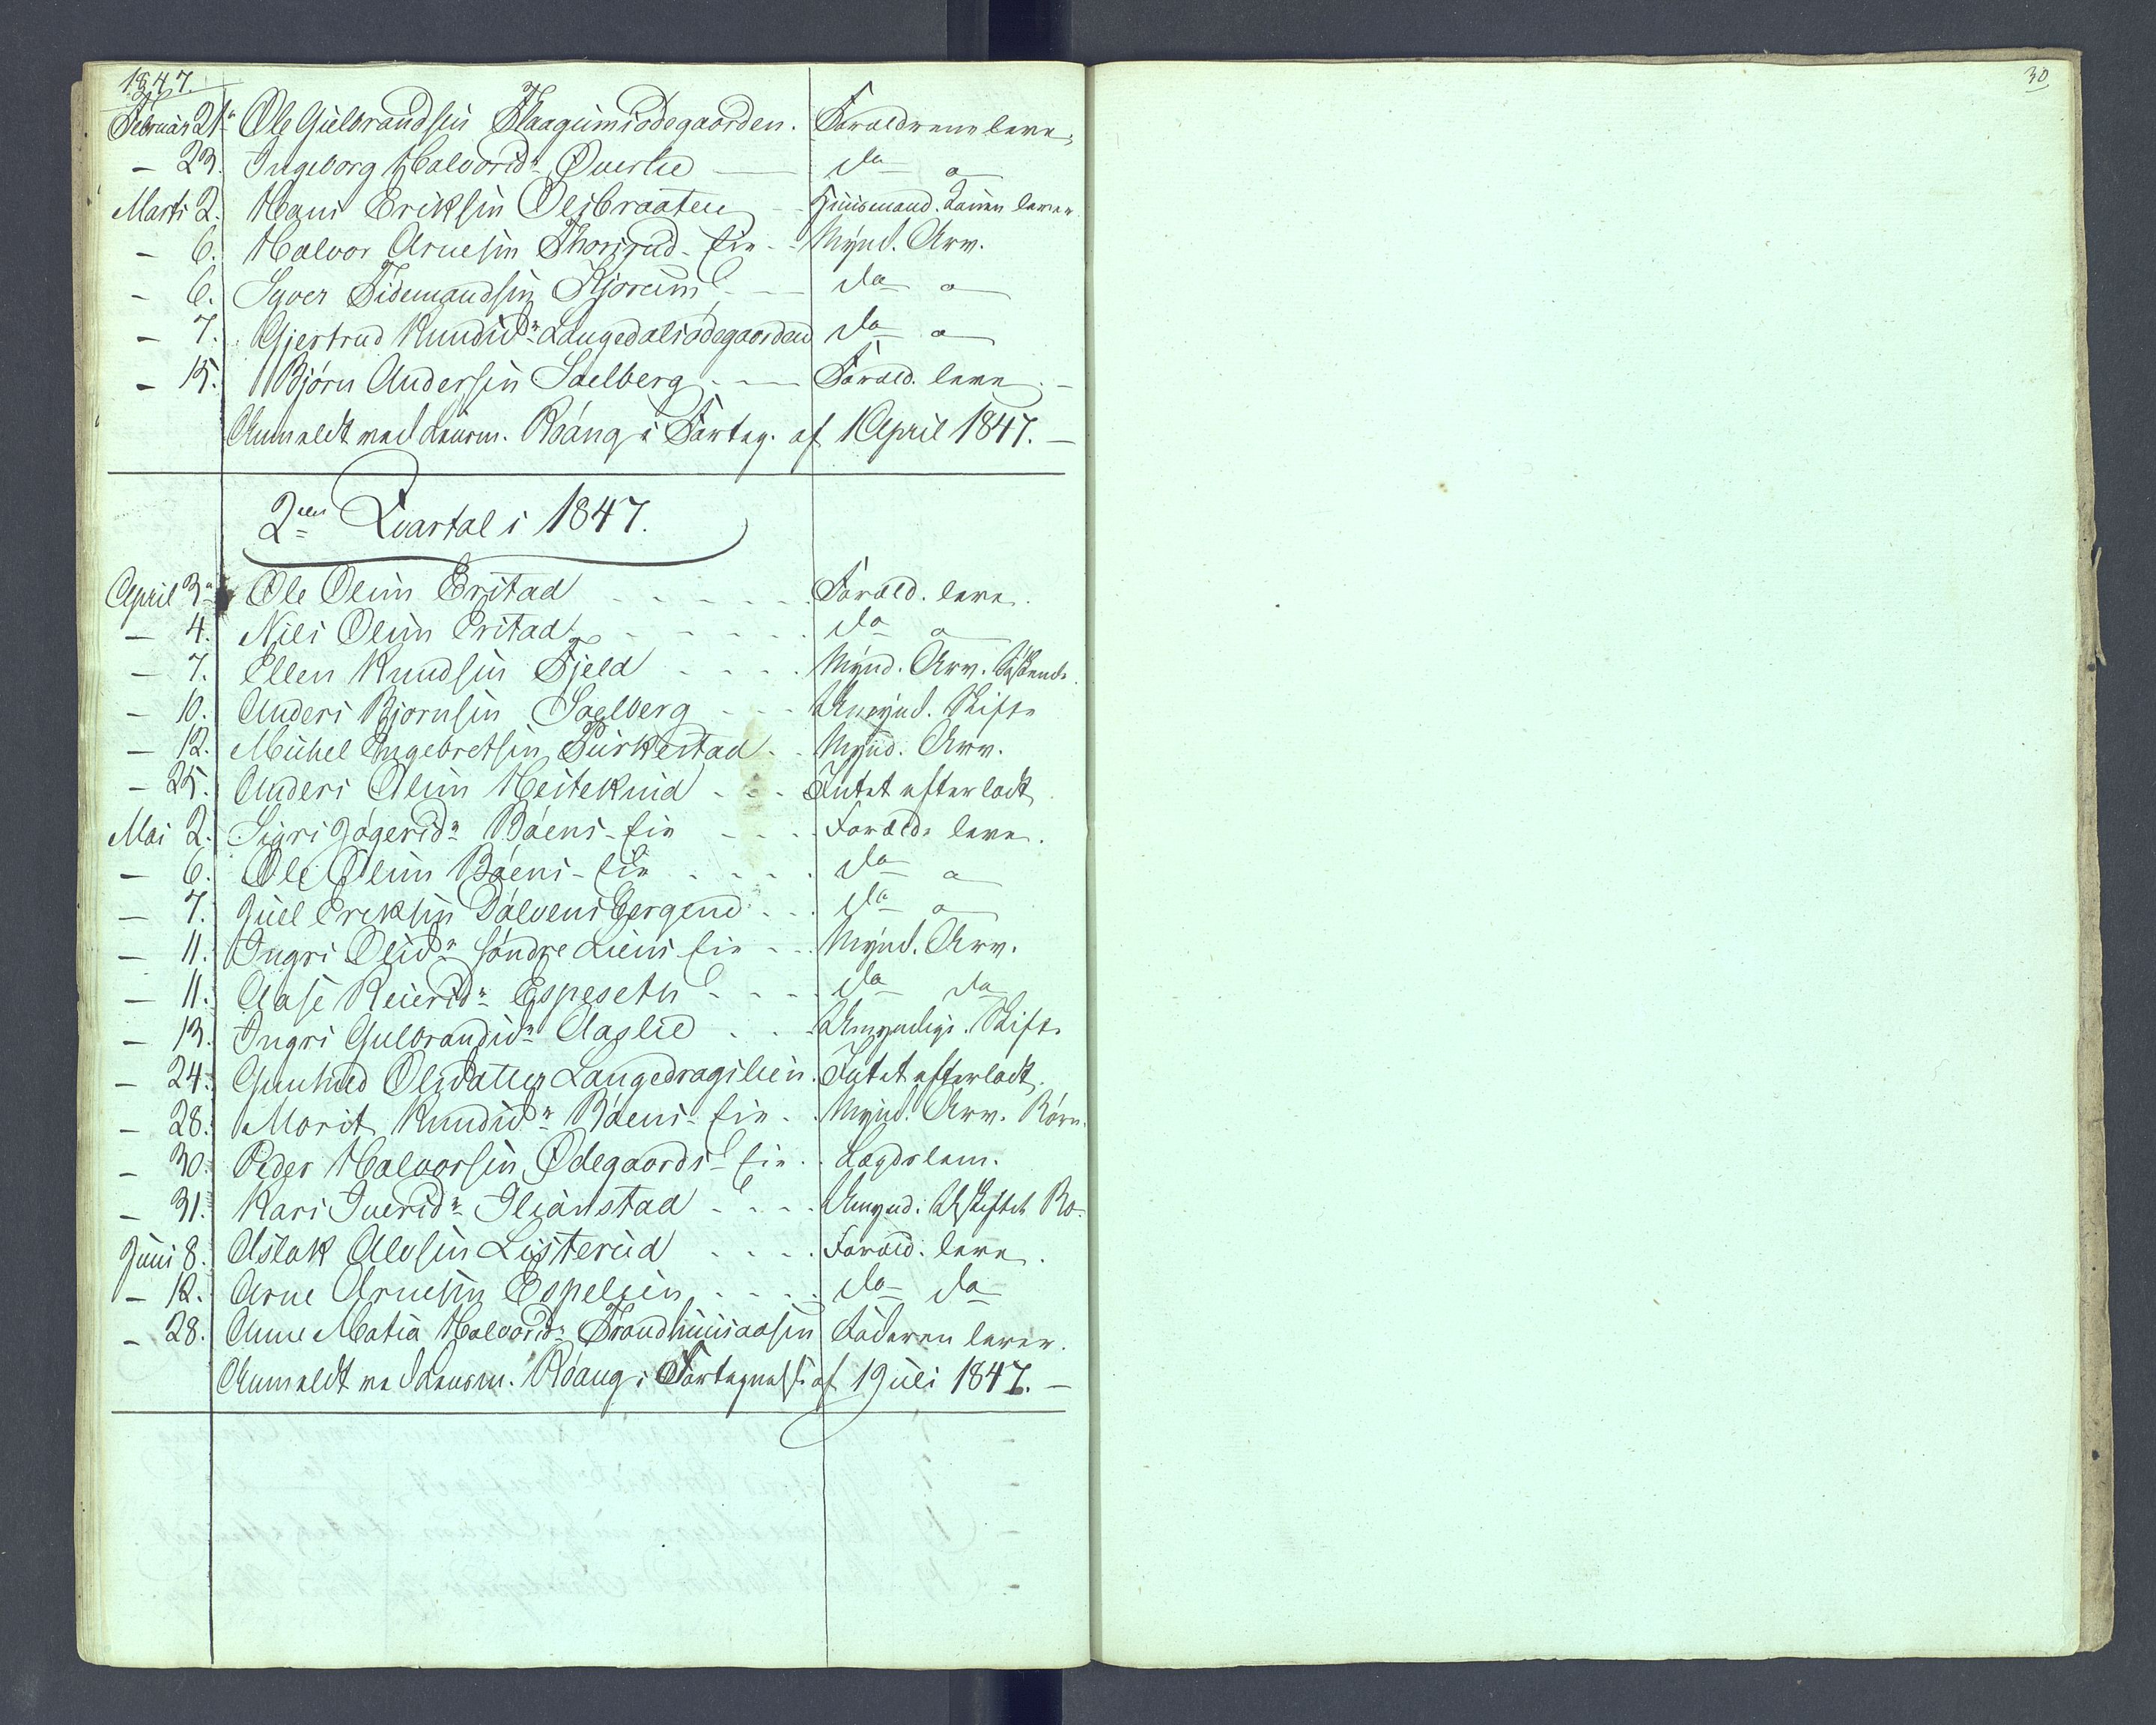 1847.
30
Februar 21de Ole Gulbrandsen Haagumsødegaarden. Forældrene leve.
- 23. Ingeborg Halvorsdr Øverlie - do - o -
Marts 2. Hans Eriksen Olsbraaten - Huusmand. Konen lever.
- 6. Halvor Arnesen Thorsrud-Eie - Mynd. Arv.
- 6. Syver Tidemandsen Kjorum - do - o -
- 7. Gjertrud Knudsdr Langedalsødegaarden do - o -
- 15. Bjørn Andersen Saelberg - Foræld. leve. -
Anmeldt ved Lensm. Roang i Forteg. af 1 April 1847. -
2den Qvartal i 1847.
April 3de Ole Olsen Erstad - Foræld. leve.
- 4. Nils Olsen Erstad - do - o -
- 7. Ellen Knudsen Fjeld - Mynd. Arv. Søskende.
- 10. Anders Bjørnsen Saelberg - Umynd. Skifte
- 12. Mikkel Ingebretsen - Mynd. Arv.
- 25. Anders Olsen - Intet efterladt.
Mai 2. Sigri Jøgersdr Bøens-Eie - Foræld. leve.
- 6. Ole Olsen Bøens-Eie - do - o -
- 7. Juel Eriksen - do - o -
- 11. Ingri Olsdr søndre Liens Eie - Mynd. Arv.
- 11. Aase Reiersdr Espeseth - do do
- 13. Ingri Gulbrandsdr Aaslie - Umyndige. Skifte
- 24. Gunhild Olsdatter Langedragslien. Intet efterladt.
- 28. Morit Knudsdr Bøens-Eie. Mynd. Arv. Børn.
- 30. Peder Halvorsen Ødegaards-Eie. Lægdslem.
- 31. Kari Iversdr - Umynd. Uskiftet Bo.
Juni 8. Aslak Alvsen Listerud - Foræld. leve.
- 12. Arne Arnesen Espelien - do do
- 28. Anne Matia Halvorsdr Faderen lever.
Anmeldt ved Lensm. Roang i Fortegnelse af 1 Juli 1847. -